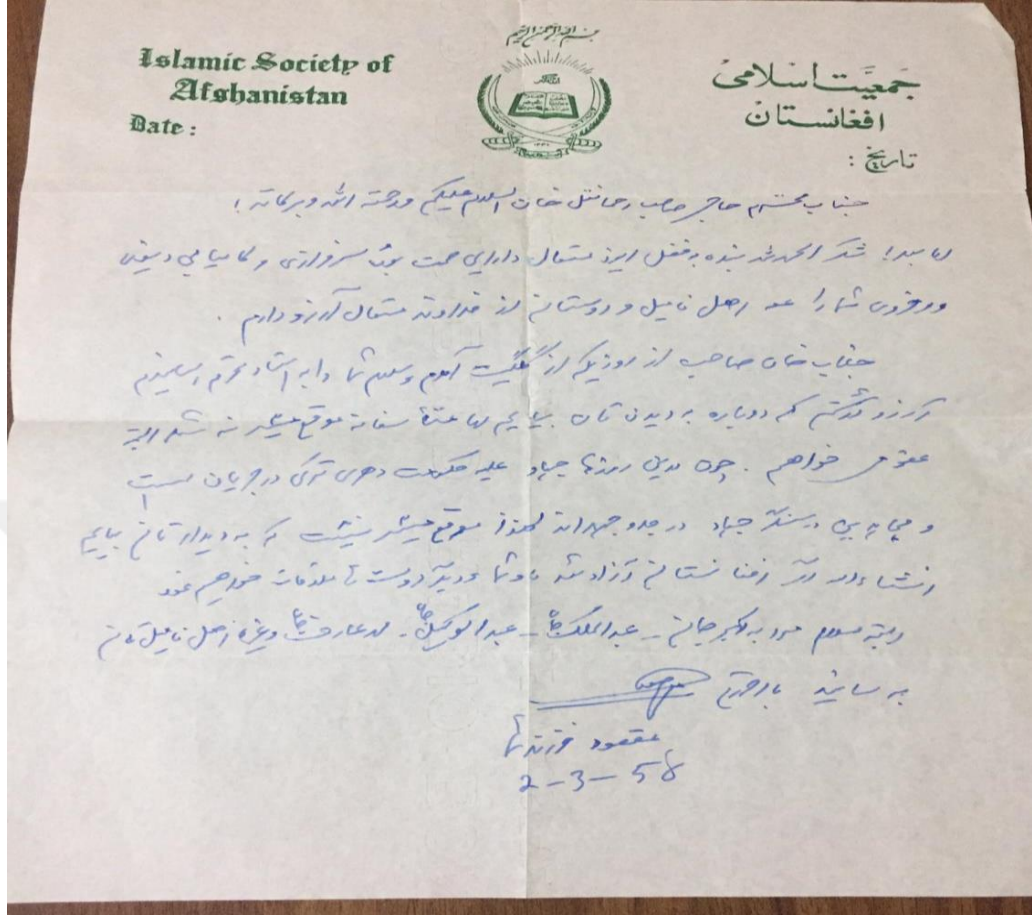 بسم الله الرحمن الرحيم
Islamic Society of
Afghanistan
Date :
جمعیت اسلامی
افغانستان
تاریخ :
جناب محترم حاجی صاحب خان السلام علیکم ورحمته الله وبرکاته !
اما بعد ! شکر الحمدلله بنده بفضل ایزد متعال دارای صحت بوده سرفرازی و کامیابی
شما را اهل فامیل و دوستان از خداوند متعال آرزو دارم .
جناب خان صاحب از روزیکه از گلگیت آمدم وسلام شما را به استاد محترم رسانیدم
آرزو داشتم که دوباره به دیدن تان بیایم اما متأسفانه موقع میسر نه شد البته
عفو می خواهم . چون بدین روزها جهاد علیه حکومت دهری ترکی در جریان است
و در سنگر جهاد در جدوجهداند لهذا موقع میسر نیست که به دیدار تان بیایم
انشاءالله اگر افغانستان آزاد شد با شما و دیگر دوستان ملاقات خواهیم نمود
البته سلام مرا به اکبر جان – عبدالملک – عبدالوکیل – وغیره اهل فامیل تان
به رسانید بااحترام
مقصود فرزند شما
2-3-58